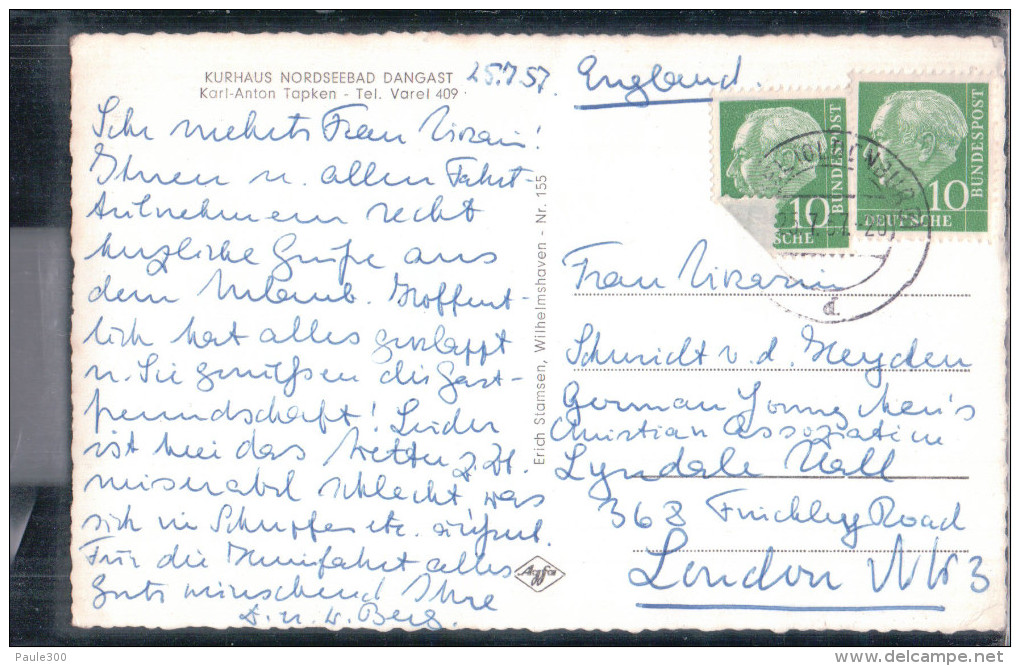 KURHAUS NORDSEEBAD DANGAST
Karl-Anton Tapken - Tel. Varel 409
25.7.57.
Sehr verehrte Frau Vikarin!
Ihnen u. allen Fahrt-
teilnehmern recht
herzliche Grüße aus
dem Urlaub. Hoffent-
lich hat alles geklappt
u. Sie genießen die Gast-
freundschaft! Leider
ist hier das Wetter z. Zt.
miserabel schlecht, was
sich in Schnupfen etc. äußert.
Für die Heimfahrt alles
Gute wünschend Ihre
u. W. Berg.
Erich Stamsen, Wilhelmshaven - Nr. 155
Agfa
England.
10
DEUTSCHE
BUNDESPOST
10
SCHE
BUNDESPOST
25.7.57.-20
d
Frau Vikarin
Schmidt v. d. Heyden
German Young Men's
Christian Assoziation
Lyndale Hall
368 Finchley Road
London NW 3
Paule300